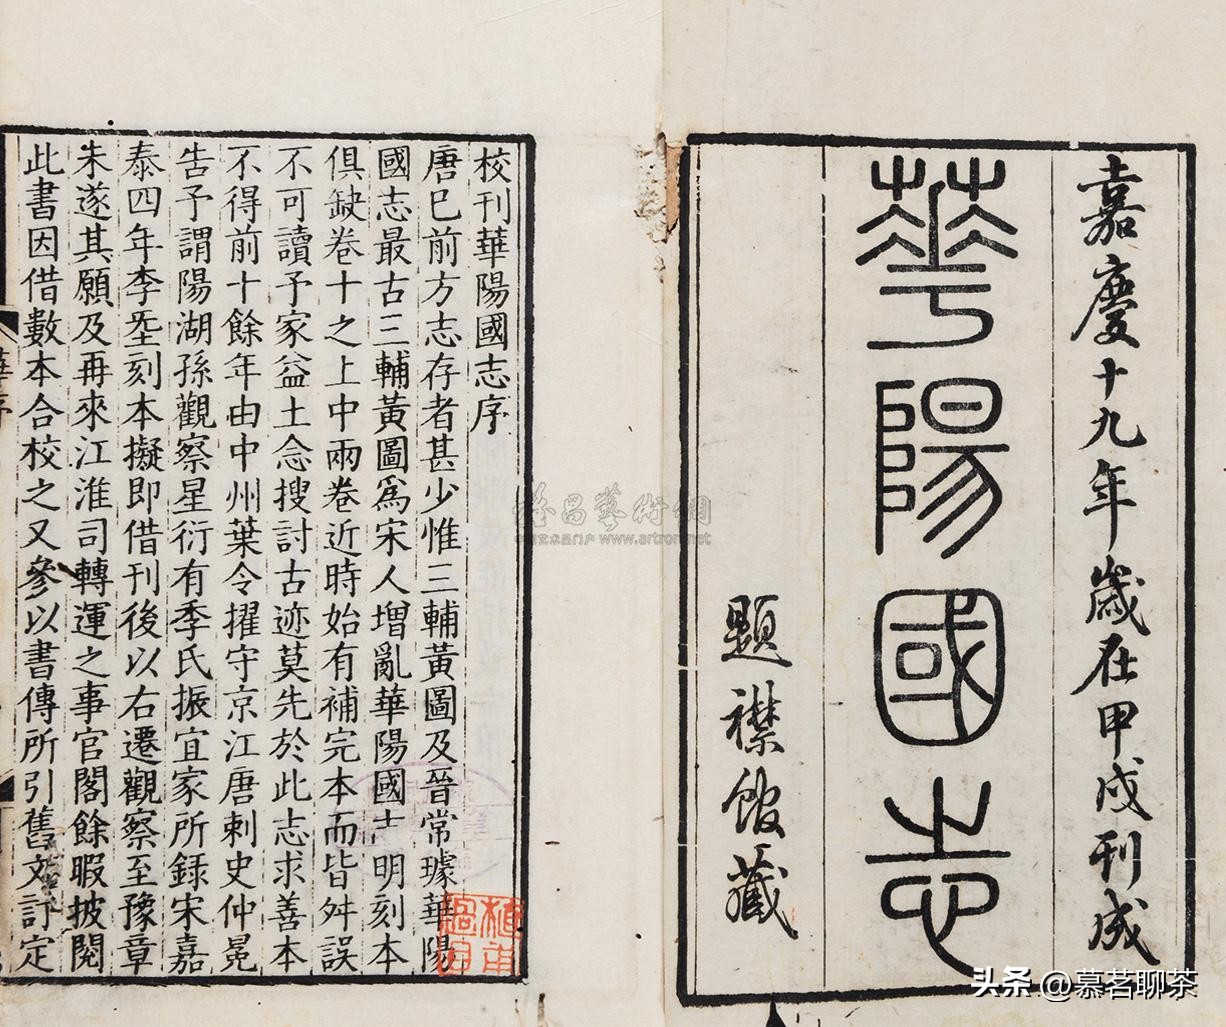 嘉慶十九年歲在甲戌刊成
華陽國志
題襟館藏
校刊華陽國志序
唐已前方志存者甚少惟三輔黃圖及晉常璩華陽
國志最古三輔黃圖爲宋人增亂華陽國志明刻本
俱缺卷十之上中兩卷近時始有補完本而皆舛誤
不可讀予家益土念搜討古迹莫先於此志求善本
不得前十餘年由中州葉令擢守京江唐刺史仲冕
告予謂陽湖孫觀察星衍有季氏振宜家所録宋嘉
泰四年李𡊮刻本擬即借刊後以右遷觀察至豫章
朱遂其願及再來江淮司轉運之事官閣餘暇披閱
此書因借數本合校之又參以書傳所引舊文訂定
華序
www.artron.net
头条 @慕茗聊茶